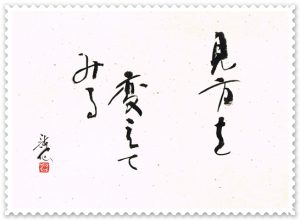 見方を
変えて
みる